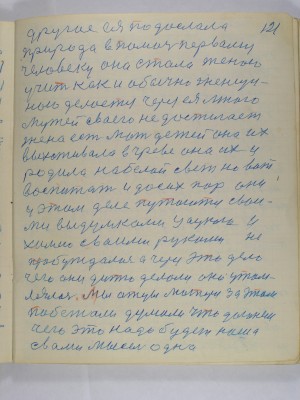 121
другое ея подослала
природа в помощ первому
человеку она стала женою
учит как и обычно женщи-
ною делается через ея много
путей своего не достигает
жена ест мат детей она их
вынашивала в чреве она их и
родила на белой свет но вот
воспитат и до сих пор они
у этом деле путаются свои-
ми выдумками у науке и
хотит своими руками не
пробуждался а через это дело
чего они дить делали она утом-
лялися. Мы а тут люди за этим
побежали думали что должен
чего это надо будет наша
с вами мысел одна